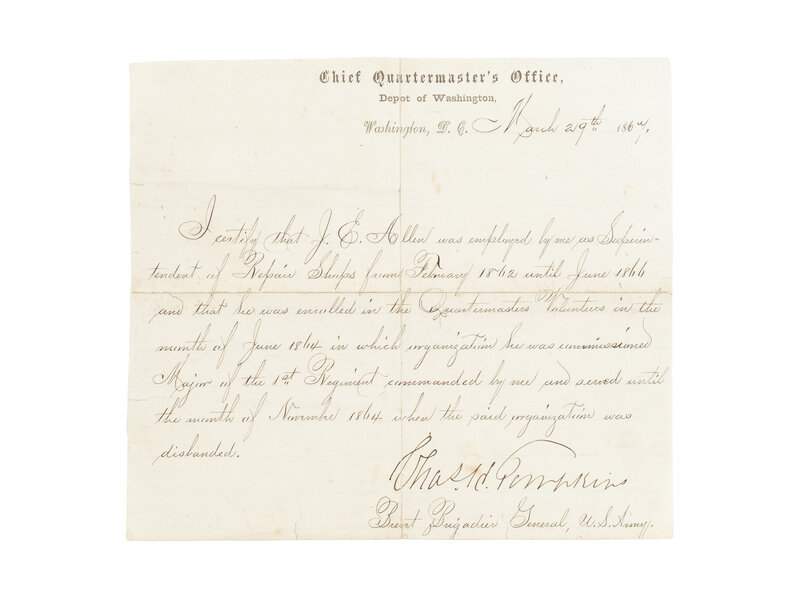 Chief Quartermaster's Office,
Depot of Washington,
Washington, D. C. March 29th 1867.
I certify that J. E. Allen was employed by me as Superin-
tendent of Repair Shops from February 1862 until June 1866
and that he was enrolled in the Quartermasters Volunteers in the
month of June 1864 in which organization he was commissioned
Major of the 1st Regiment commanded by me and served until
the month of November 1864 when the said organization was
disbanded.
Chas. H. Tompkins
Brevet Brigadier General, U.S. Army.